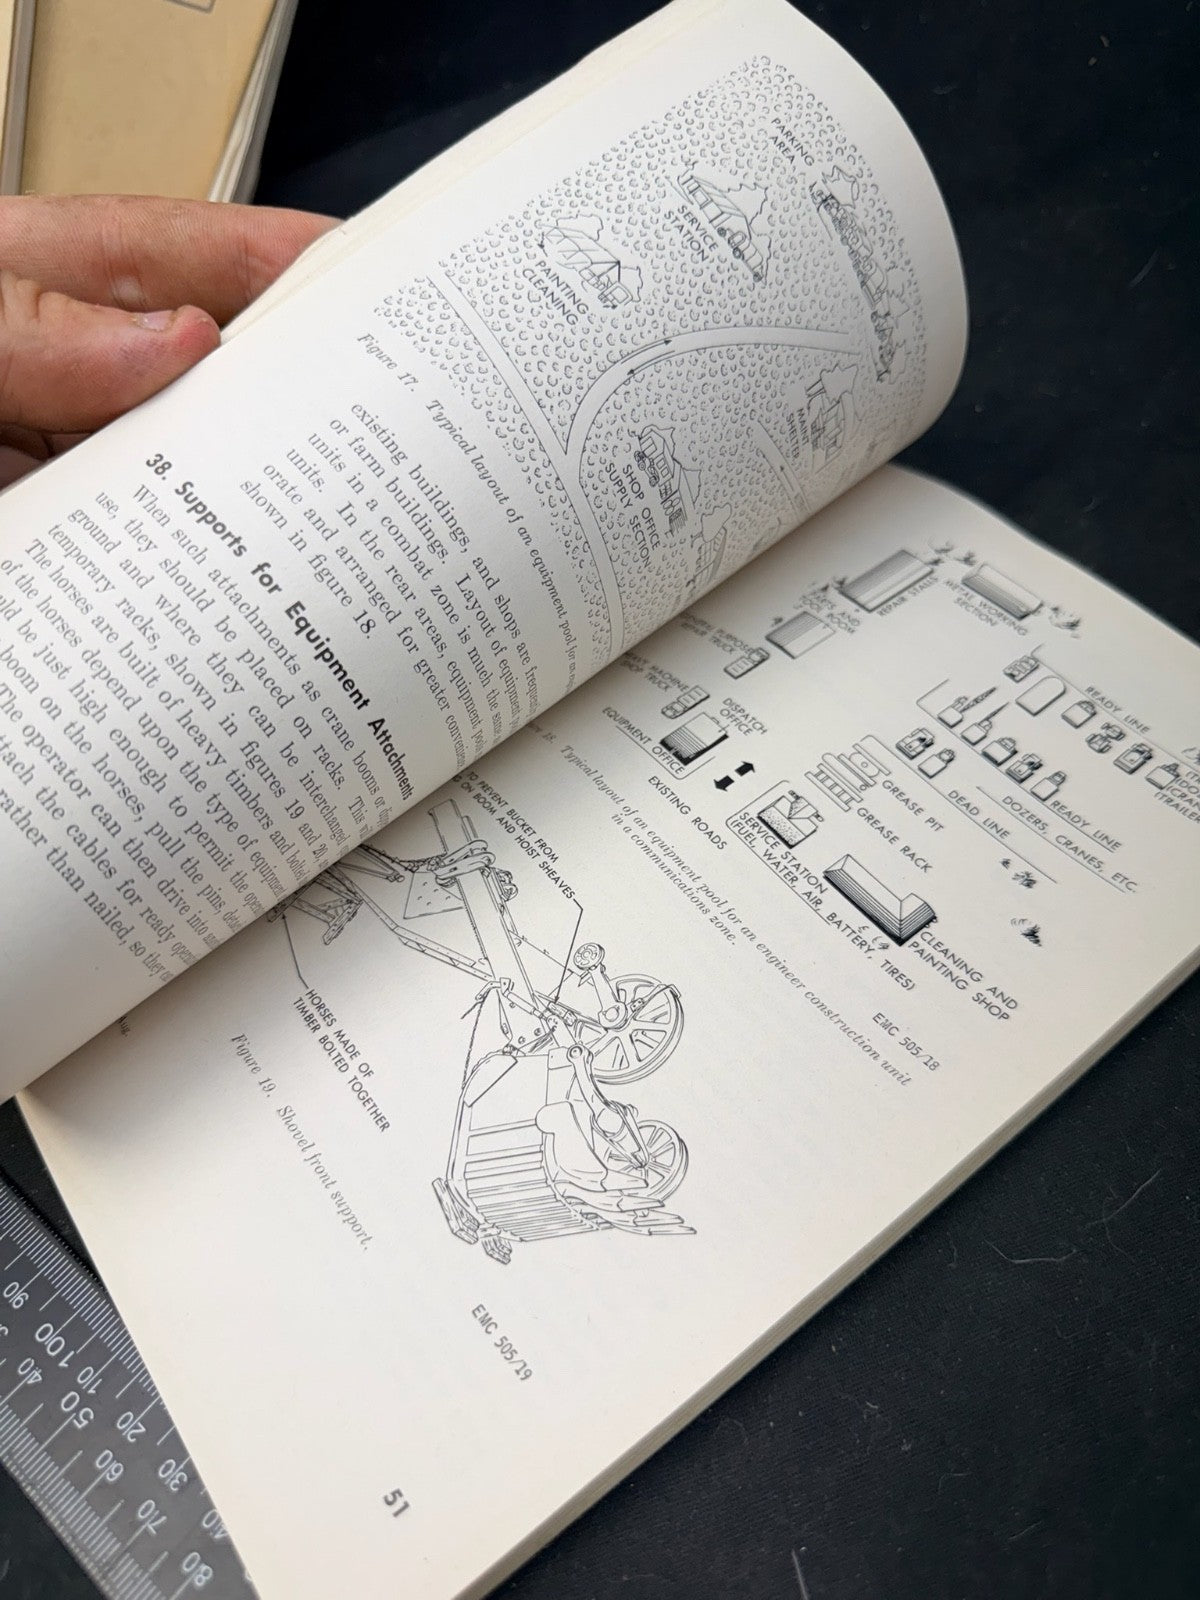 PARKING
AREA
SERVICE
STATION
PAINTING
CLEANING
MAINT
SHELTER
SHOP OFFICE
SUPPLY SECTION
Figure 17. Typical layout of an equipment pool for an
existing buildings, and shops are
or farm buildings. Layout of equipment
units in a combat zone is much the same
units. In the rear areas, equipment pools
orate and arranged for greater
shown in figure 18.
38. Supports for Equipment Attachments
When such attachments as crane booms or
use, they should be placed on racks. This will
ground and where they can be interchanged
temporary racks, shown in figures 19 and 20,
The horses are built of heavy timbers and bolted
of the horses depend upon the type of equipment
be just high enough to permit the
boom on the horses, pull the pins,
The operator can then drive into
the cables for ready
rather than nailed, so they can
METAL WORKING
SECTION
REPAIR STALLS
PARTS AND
TOOL ROOM
PURPOSE
REPAIR TRUCK
MACHINE
SHOP TRUCK
DISPATCH
OFFICE
EQUIPMENT OFFICE
EXISTING ROADS
READY LINE
READY LINE
DOZERS, CRANES, ETC.
DEAD LINE
GREASE PIT
GREASE RACK
SERVICE STATION
(FUEL, WATER, AIR, BATTERY, TIRES)
CLEANING AND
PAINTING SHOP
EMC 505/18
18. Typical layout of an equipment pool for an engineer construction unit
in a communications zone.
TO PREVENT BUCKET FROM
ON BOOM AND HOIST SHEAVES
HORSES MADE OF
TIMBER BOLTED TOGETHER
EMC 505/19
Figure 19. Shovel front support.
51
90
100
110
40
50
60
70
80